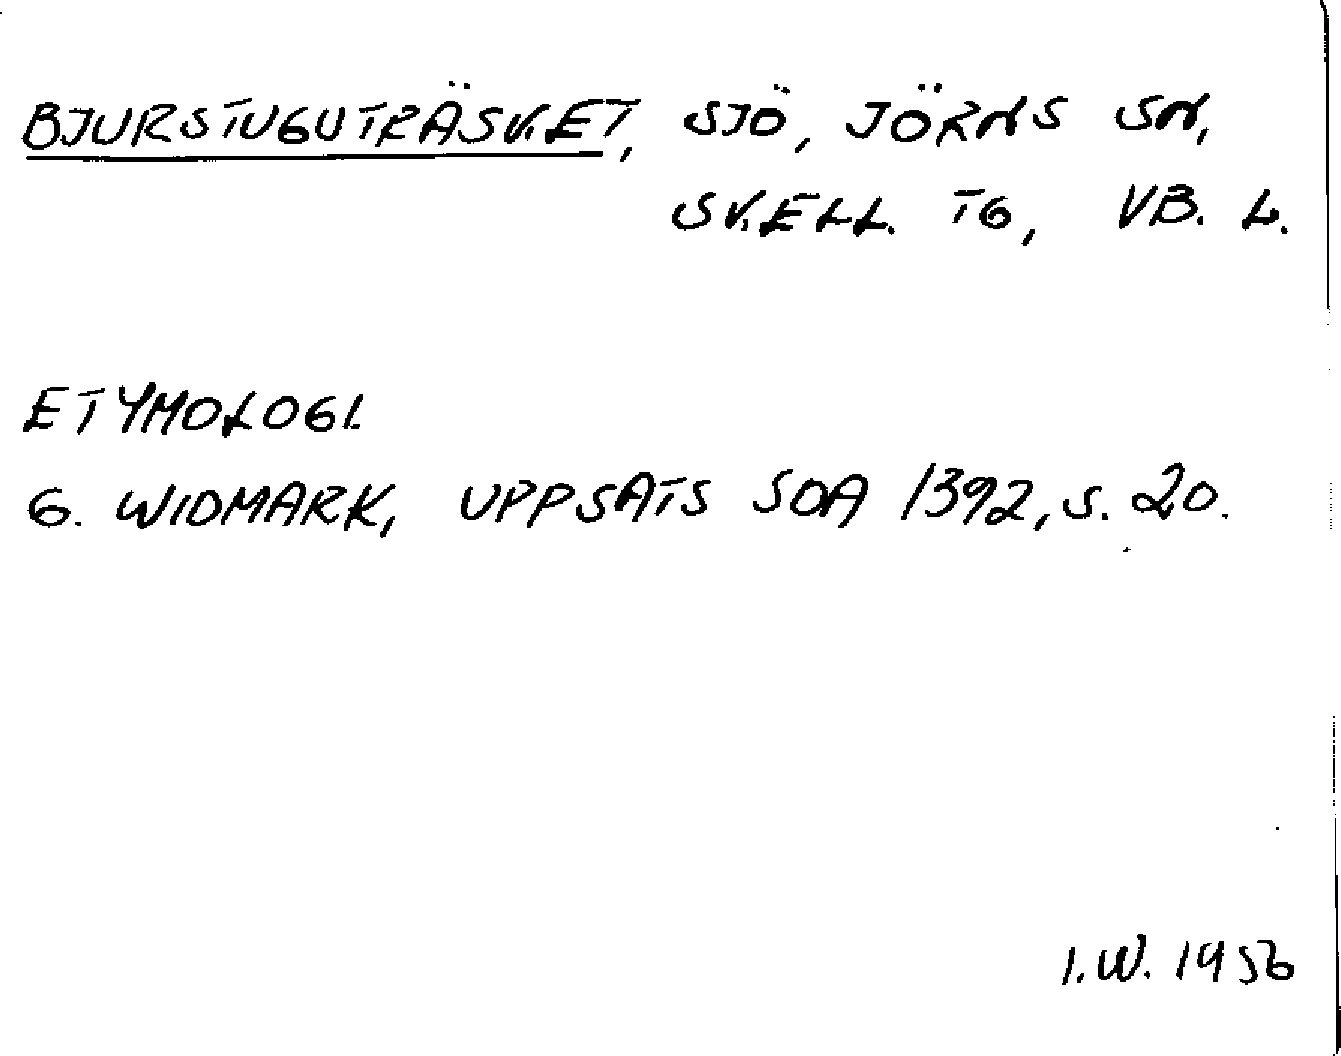 BJURSTUGUTRÄSKET, SJÖ, JÖRNS SN,
SKELL. TG, VB. L.
ETYMOLOGI.
G. WIDMARK, UPPSATS SOA 1392, S. 20.
I.W. 1956